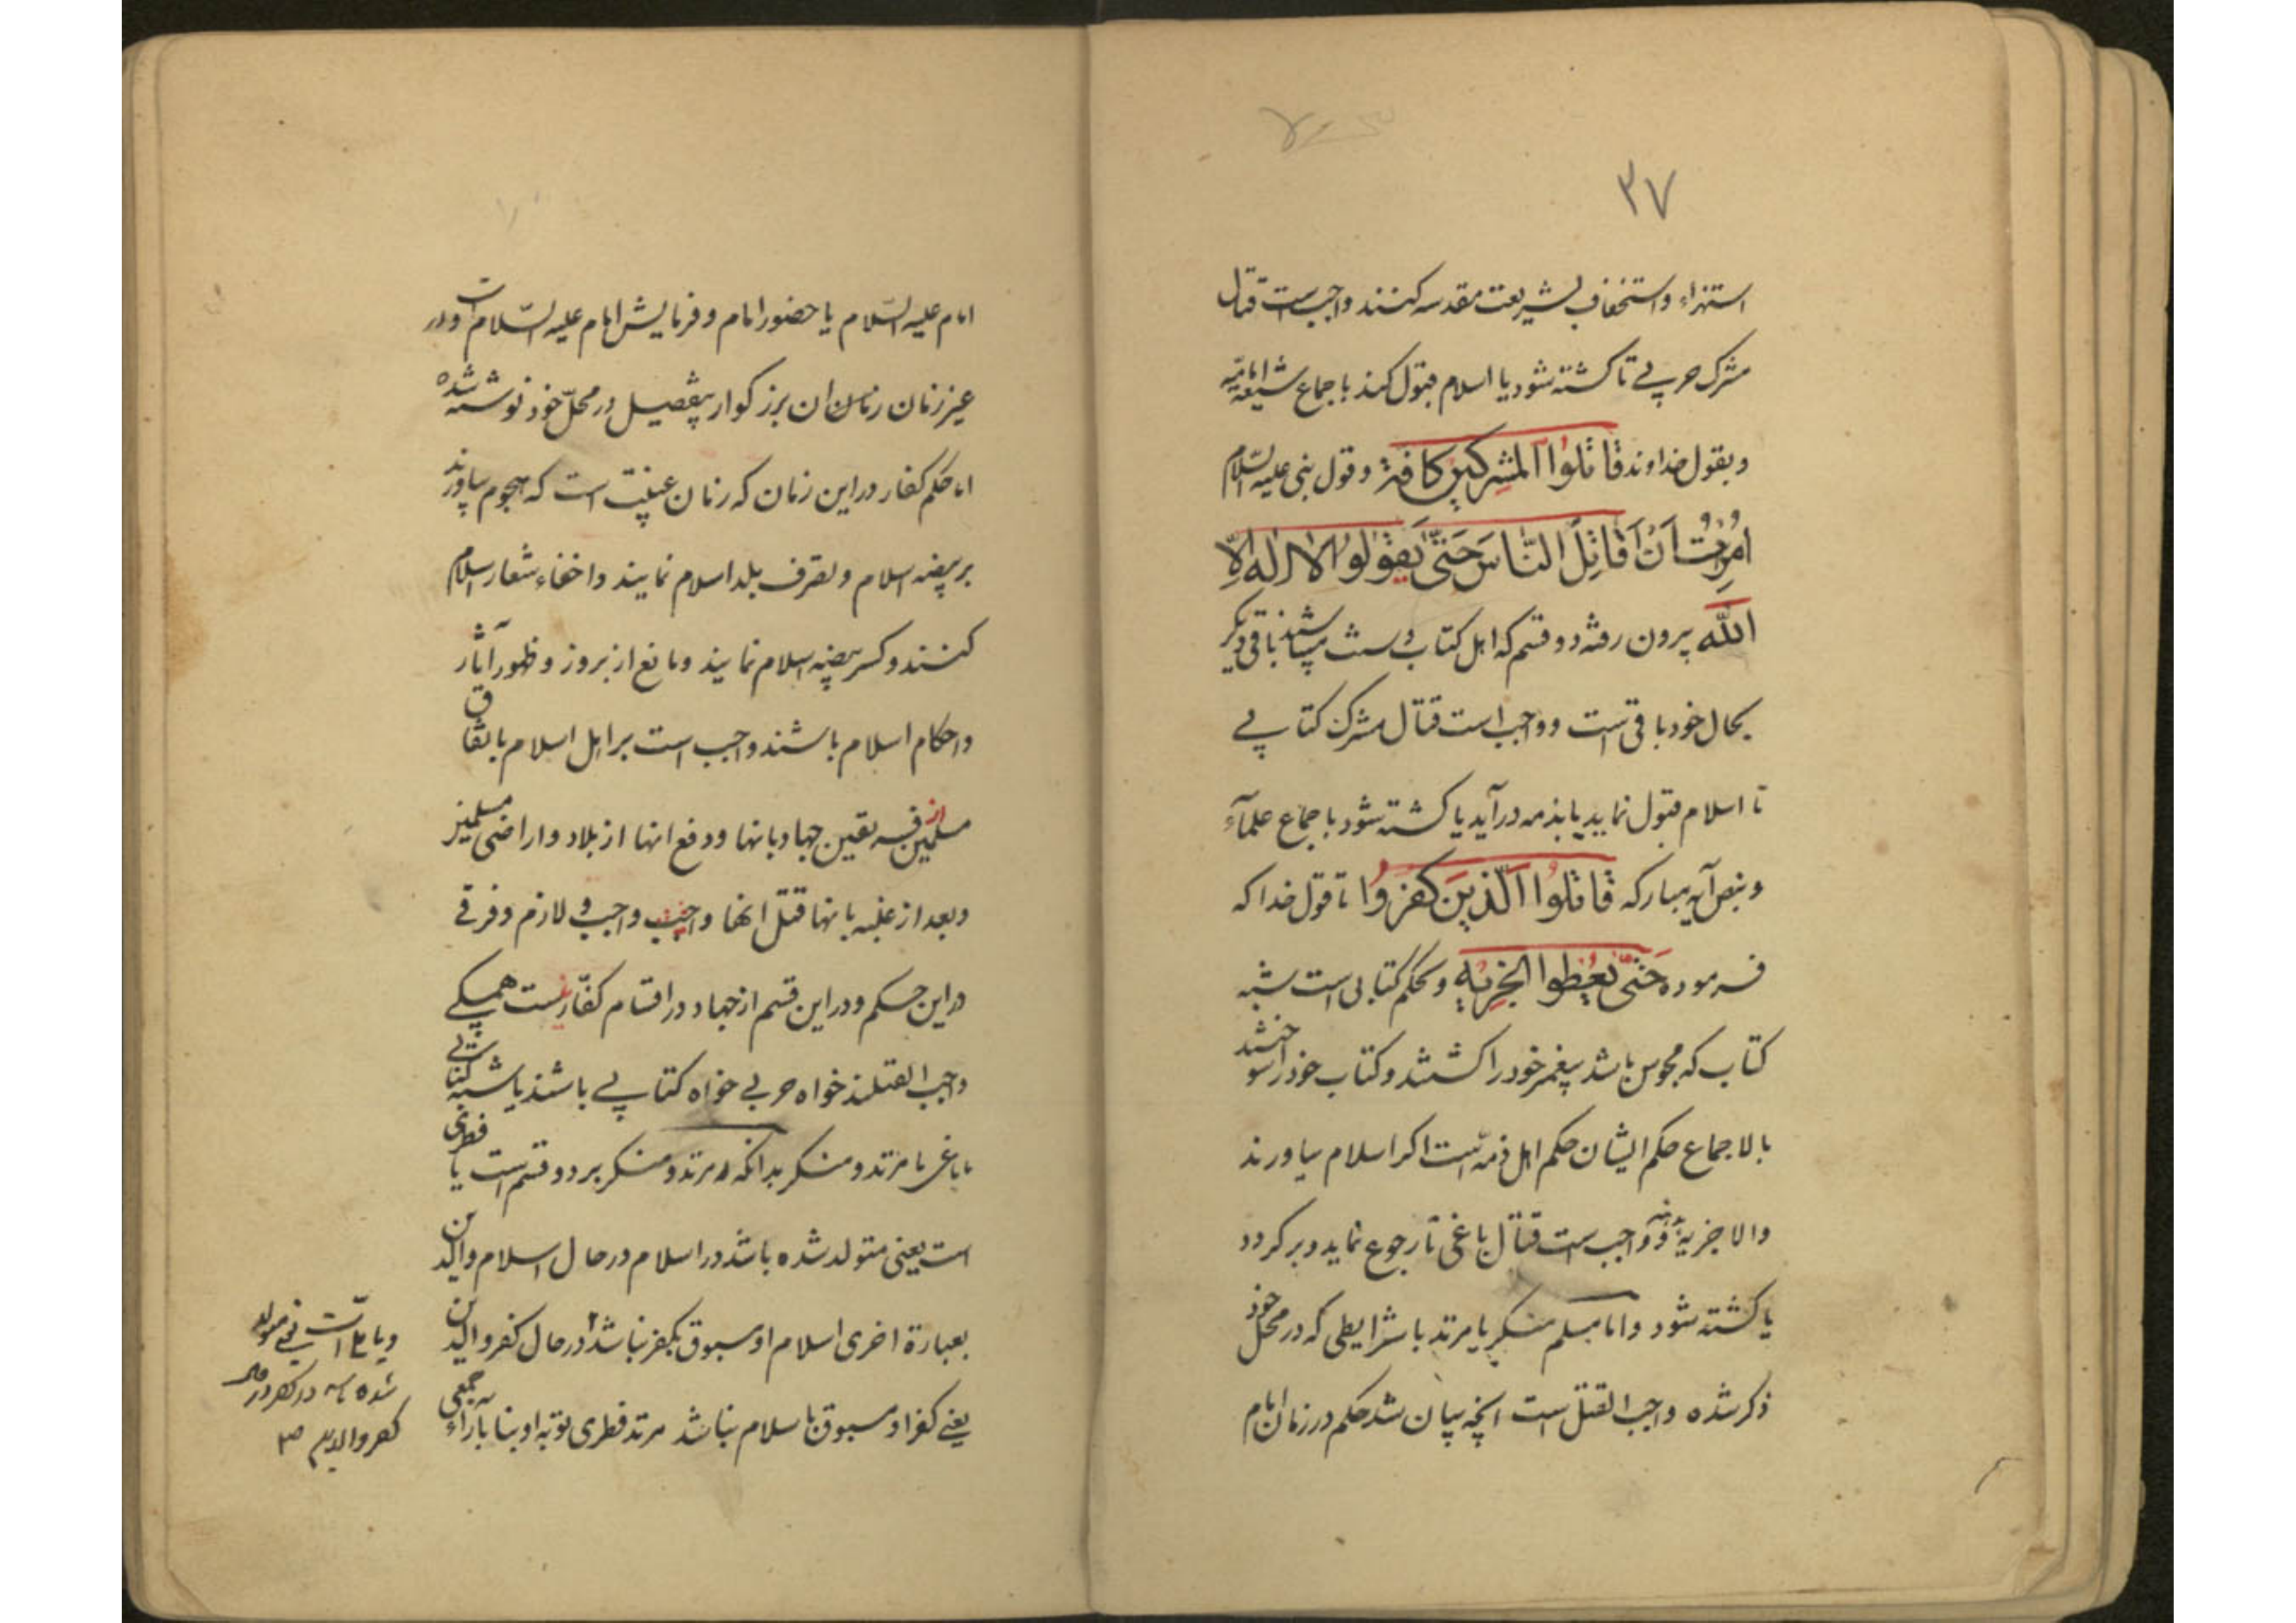 ۳۷
استهزاء و استخفاف بشریعت مقدسه کنند واجبست قتال
مشرک حربی تا کشته شود یا اسلام قبول کند باجماع شیعه امامیه
و بقول خداوند قاتلوا المشرکین کافة و قول نبی علیه السلام
اُمِرْتُ اَنْ اُقاتِلَ النّاسَ حَتّی یَقولوا لا اله اِلّا
الله بیرون رفته دو قسم که اهل کتاب و باشند باقی دیگر
بحال خود باقی است و واجب است قتال مشرک کتابی
تا اسلام قبول نماید یا بذمه درآید یا کشته شود باجماع علمآء
و بنص آیه مبارکه قاتلوا الّذین کفروا تا قول خدا که
فرموده حَتّی یُعطوا الجزیه و بحکم کتابی است شبه
کتاب که مجوس باشد پیغمبر خود را کشتند و کتاب خود را سوختند
بالاجماع حکم ایشان حکم اهل ذمّه است اکر اسلام بیاورند
والا جزیه و واجب است قتال باغی تا رجوع نماید و برکردد
یا کشته شود و اما مسلم منکر یا مرتد با شرایطی که در محل خود
ذکر شده واجب القتل است انچه بیان شد حکم در زمان امام
امام علیه السّلام یا حضور امام و فرمایش امام علیه السّلام است و در
غیر زمان ان بزرکوار بتفصیل در محلّ خود نوشته شده
اما حکم کفار در این زمان که زمان غیبت است که هجوم بیاورند
بر بیضه اسلام و تصرف بلد اسلام نمایند و اخفاء شعار اسلام
کنند و کسر بیضه اسلام نمایند و مانع از بروز و ظهور آثار
و احکام اسلام باشند واجب است بر اهل اسلام باتفاق
مسلمین از فریقین جهاد بانها و دفع انها از بلاد و اراضی مسلمین
و بعد از غلبه بانها قتل انها واجب و لازم و فرقی
در این حکم و در این قسم از جهاد در اقسام کفّار نیست همکی
واجب القتلند خواه حربی خواه کتابی باشند یا شبه کتابی
یا باغی یا مرتد و منکر بدانکه مرتد و منکر بر دو قسم است یا فطری
است یعنی متولد شده باشد در اسلام در حال اسلام والدین
بعبارة اخری اسلام او مسبوق بکفر نباشد در حال کفر والدین
یعنی کفر او مسبوق باسلام نباشد مرتد فطری توبه او بنا بآراء جمعی
شده در کفر در حال
کفر والدین